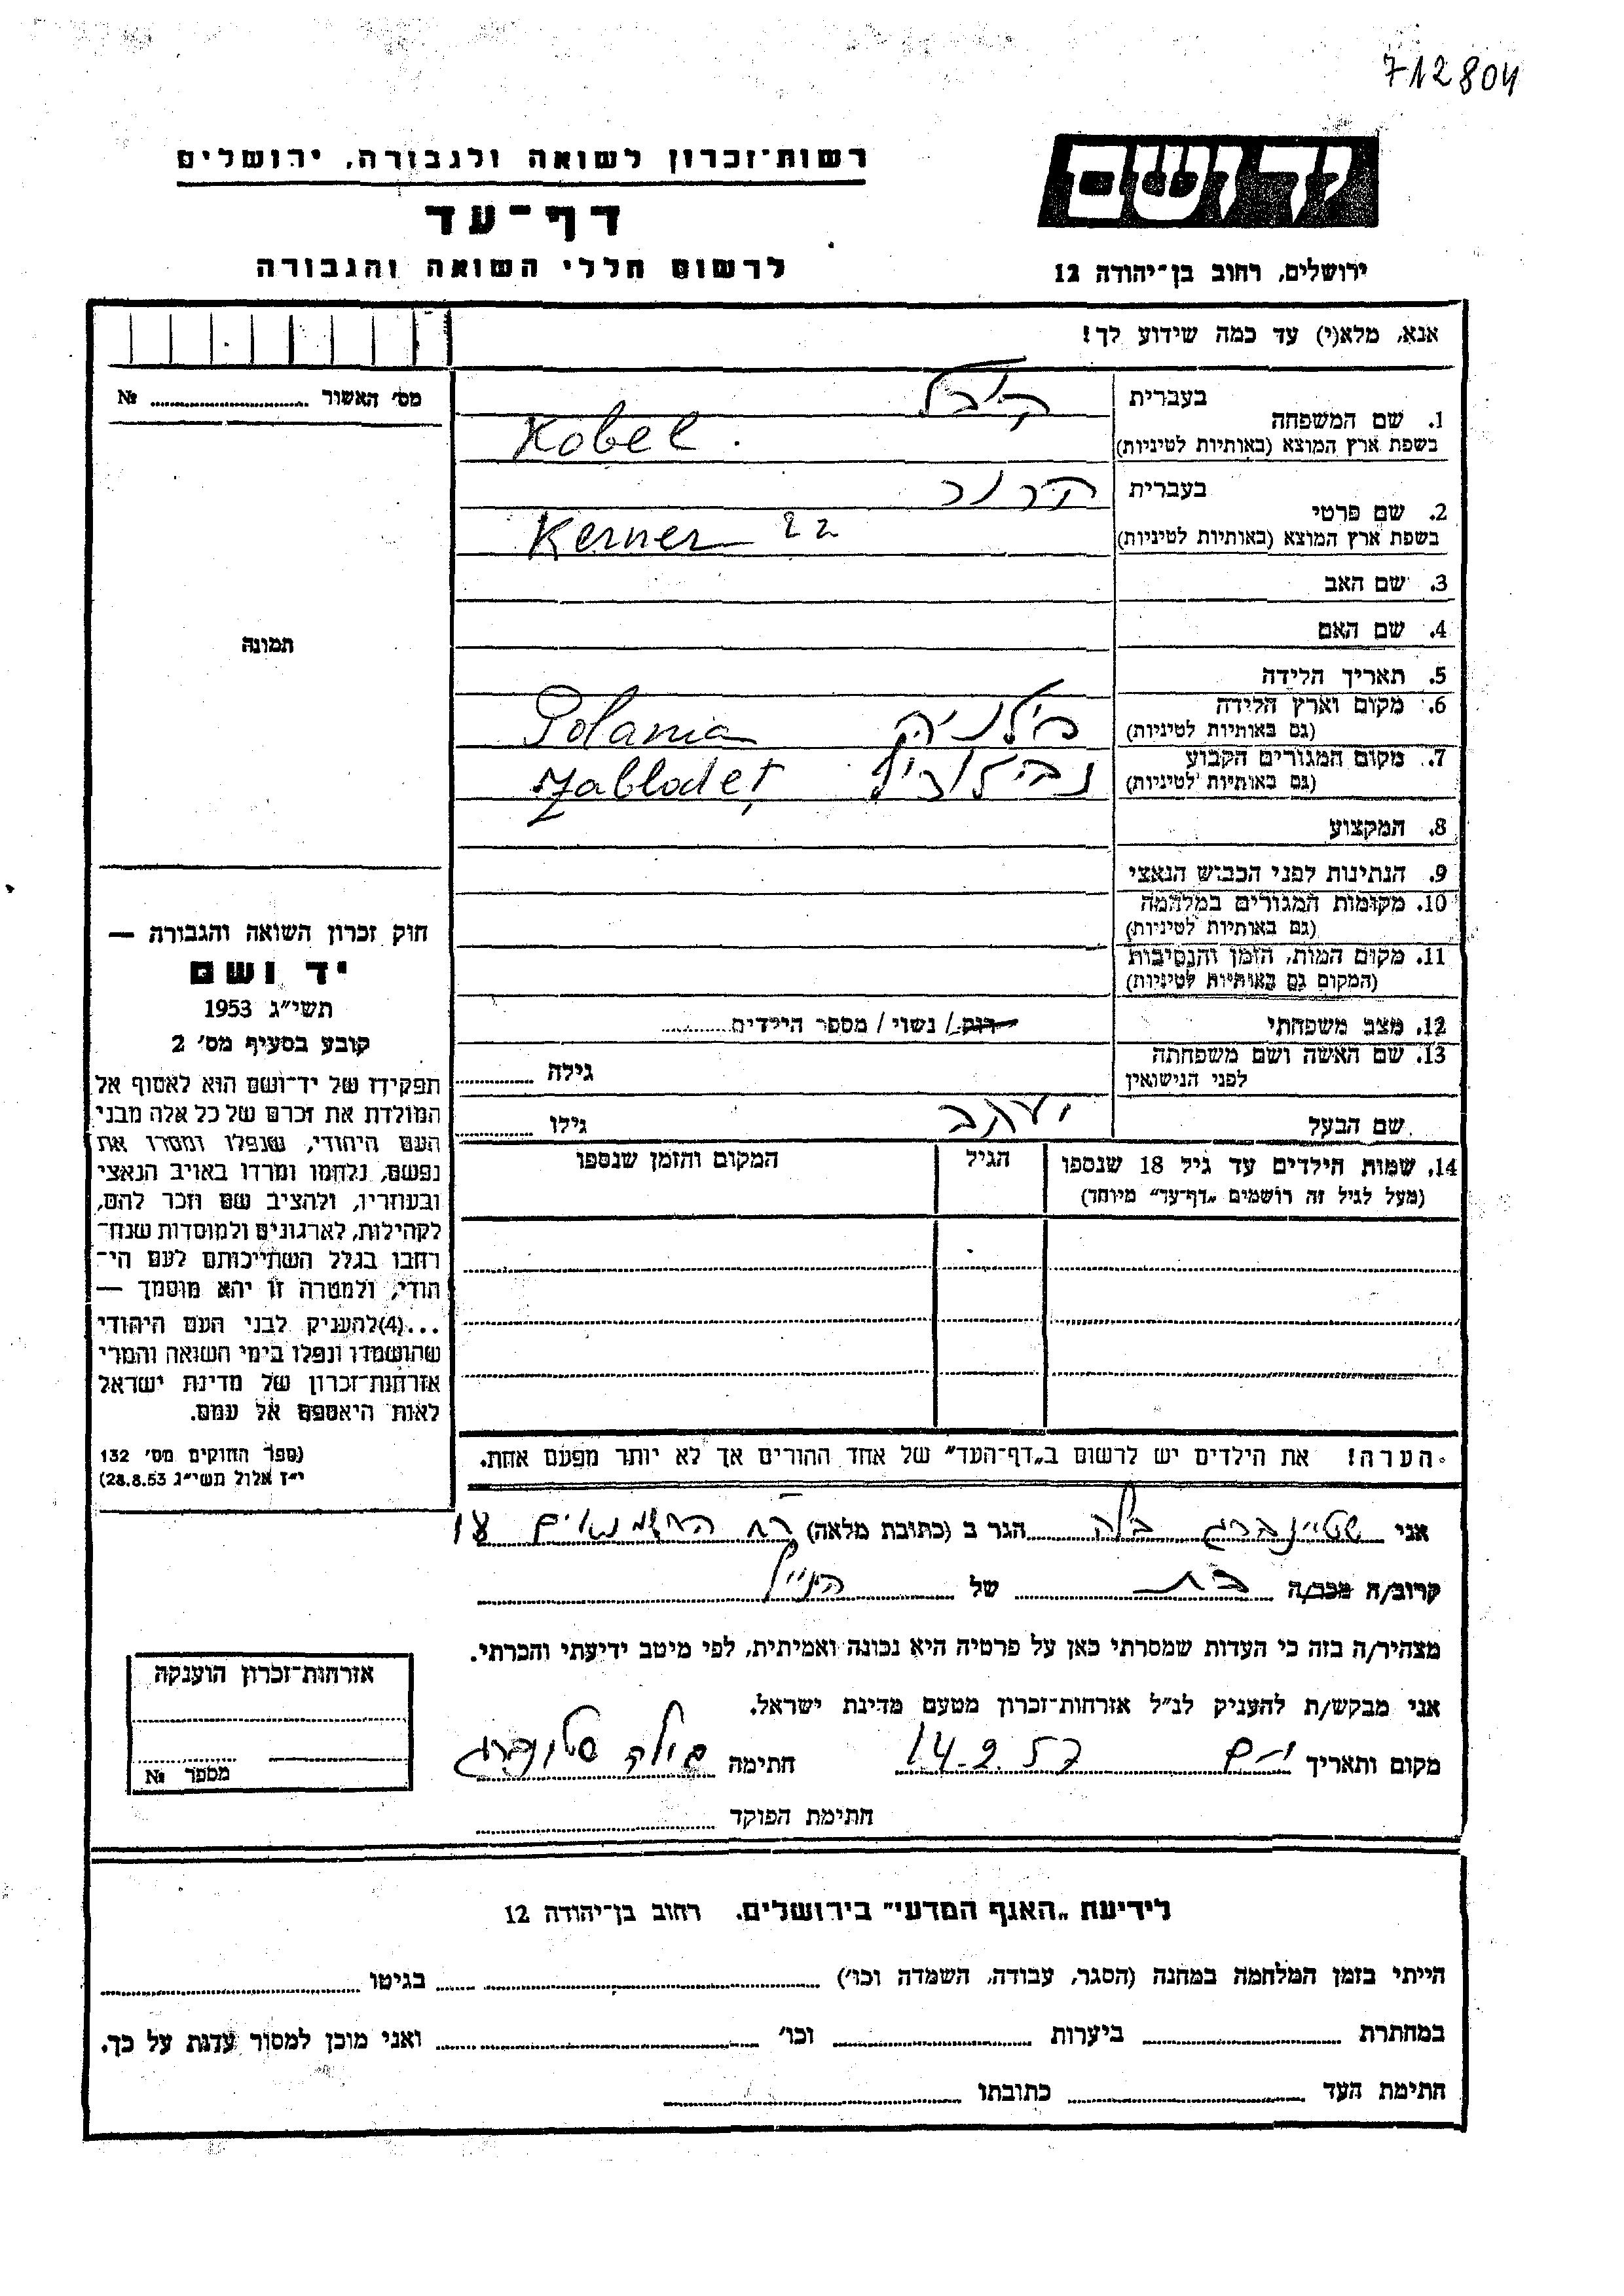 712804
יד ושם
רשות־זכרון לשואה ולגבורה, ירושלים
דף־עד
לרשום חללי השואה והגבורה
ירושלים, רחוב בן־יהודה 12
אנא, מלא(י) עד כמה שידוע לך!
מס׳ האשור № 
תמונה
חוק זכרון השואה והגבורה —
יד ושם
תשי״ג 1953
קובע בסעיף מס׳ 2
תפקידו של יד־ושם הוא לאסוף אל
המולדת את זכרם של כל אלה מבני
העם היהודי, שנפלו ומסרו את
נפשם, נלחמו ומרדו באויב הנאצי
ובעוזריו, ולהציב שם וזכר להם,
לקהילות, לארגונים ולמוסדות שנח־
רחבו בגלל השתייכותם לעם הי־
הודי, ולמטרה זו יהא מוסמך —
...(4)להעניק לבני העם היהודי
שהושמדו ונפלו בימי השואה והמרי
אזרחות־זכרון של מדינת ישראל
לאות היאספם אל עמם.
(ספר החוקים מס׳ 132
י״ז אלול תשי״ג 28.8.53)
1. שם המשפחה בעברית קובל
בשפת ארץ המוצא (באותיות לטיניות) Kobel
2. שם פרטי בעברית קרנר
בשפת ארץ המוצא (באותיות לטיניות) Kerner 22
3. שם האב
4. שם האם
5. תאריך הלידה
6. מקום וארץ הלידה
(גם באותיות לטיניות) Polania
7. מקום המגורים הקבוע
(גם באותיות לטיניות)
8. המקצוע
9. הנתינות לפני הכבוש הנאצי
10. מקומות המגורים במלחמה
(גם באותיות לטיניות)
11. מקום המות, הזמן והנסיבות
(המקום גם באותיות לטיניות)
12. מצב משפחתי רווק / נשוי / מספר הילדים
13. שם האשה ושם משפחתה
לפני הנישואין גילה
שם הבעל יעקב גילו
14. שמות הילדים עד גיל 18 שנספו הגיל המקום והזמן שנספו
(מעל לגיל זה רושמים „דף־עד״ מיוחד)
הערה! את הילדים יש לרשום ב„דף־העד״ של אחד ההורים אך לא יותר מפעם אחת.
אני שטיינברג בלה הגר ב (כתובת מלאה) רח החשמנאים
קרוב/ה מכר/ה בת של
מצהיר/ה בזה כי העדות שמסרתי כאן על פרטיה היא נכונה ואמיתית, לפי מיטב ידיעתי והכרתי.
אני מבקש/ת להעניק לנ״ל אזרחות־זכרון מטעם מדינת ישראל.
מקום ותאריך י-ם 14.2.57 חתימה
חתימת הפוקד
אזרחות־זכרון הוענקה
מספר №
לידיעת „האגף המדעי״ בירושלים. רחוב בן־יהודה 12
הייתי בזמן המלחמה במחנה (הסגר, עבודה, השמדה וכו׳) בגיטו
במחתרת ביערות וכו׳ ואני מוכן למסור עדות על כך.
חתימת העד כתובתו